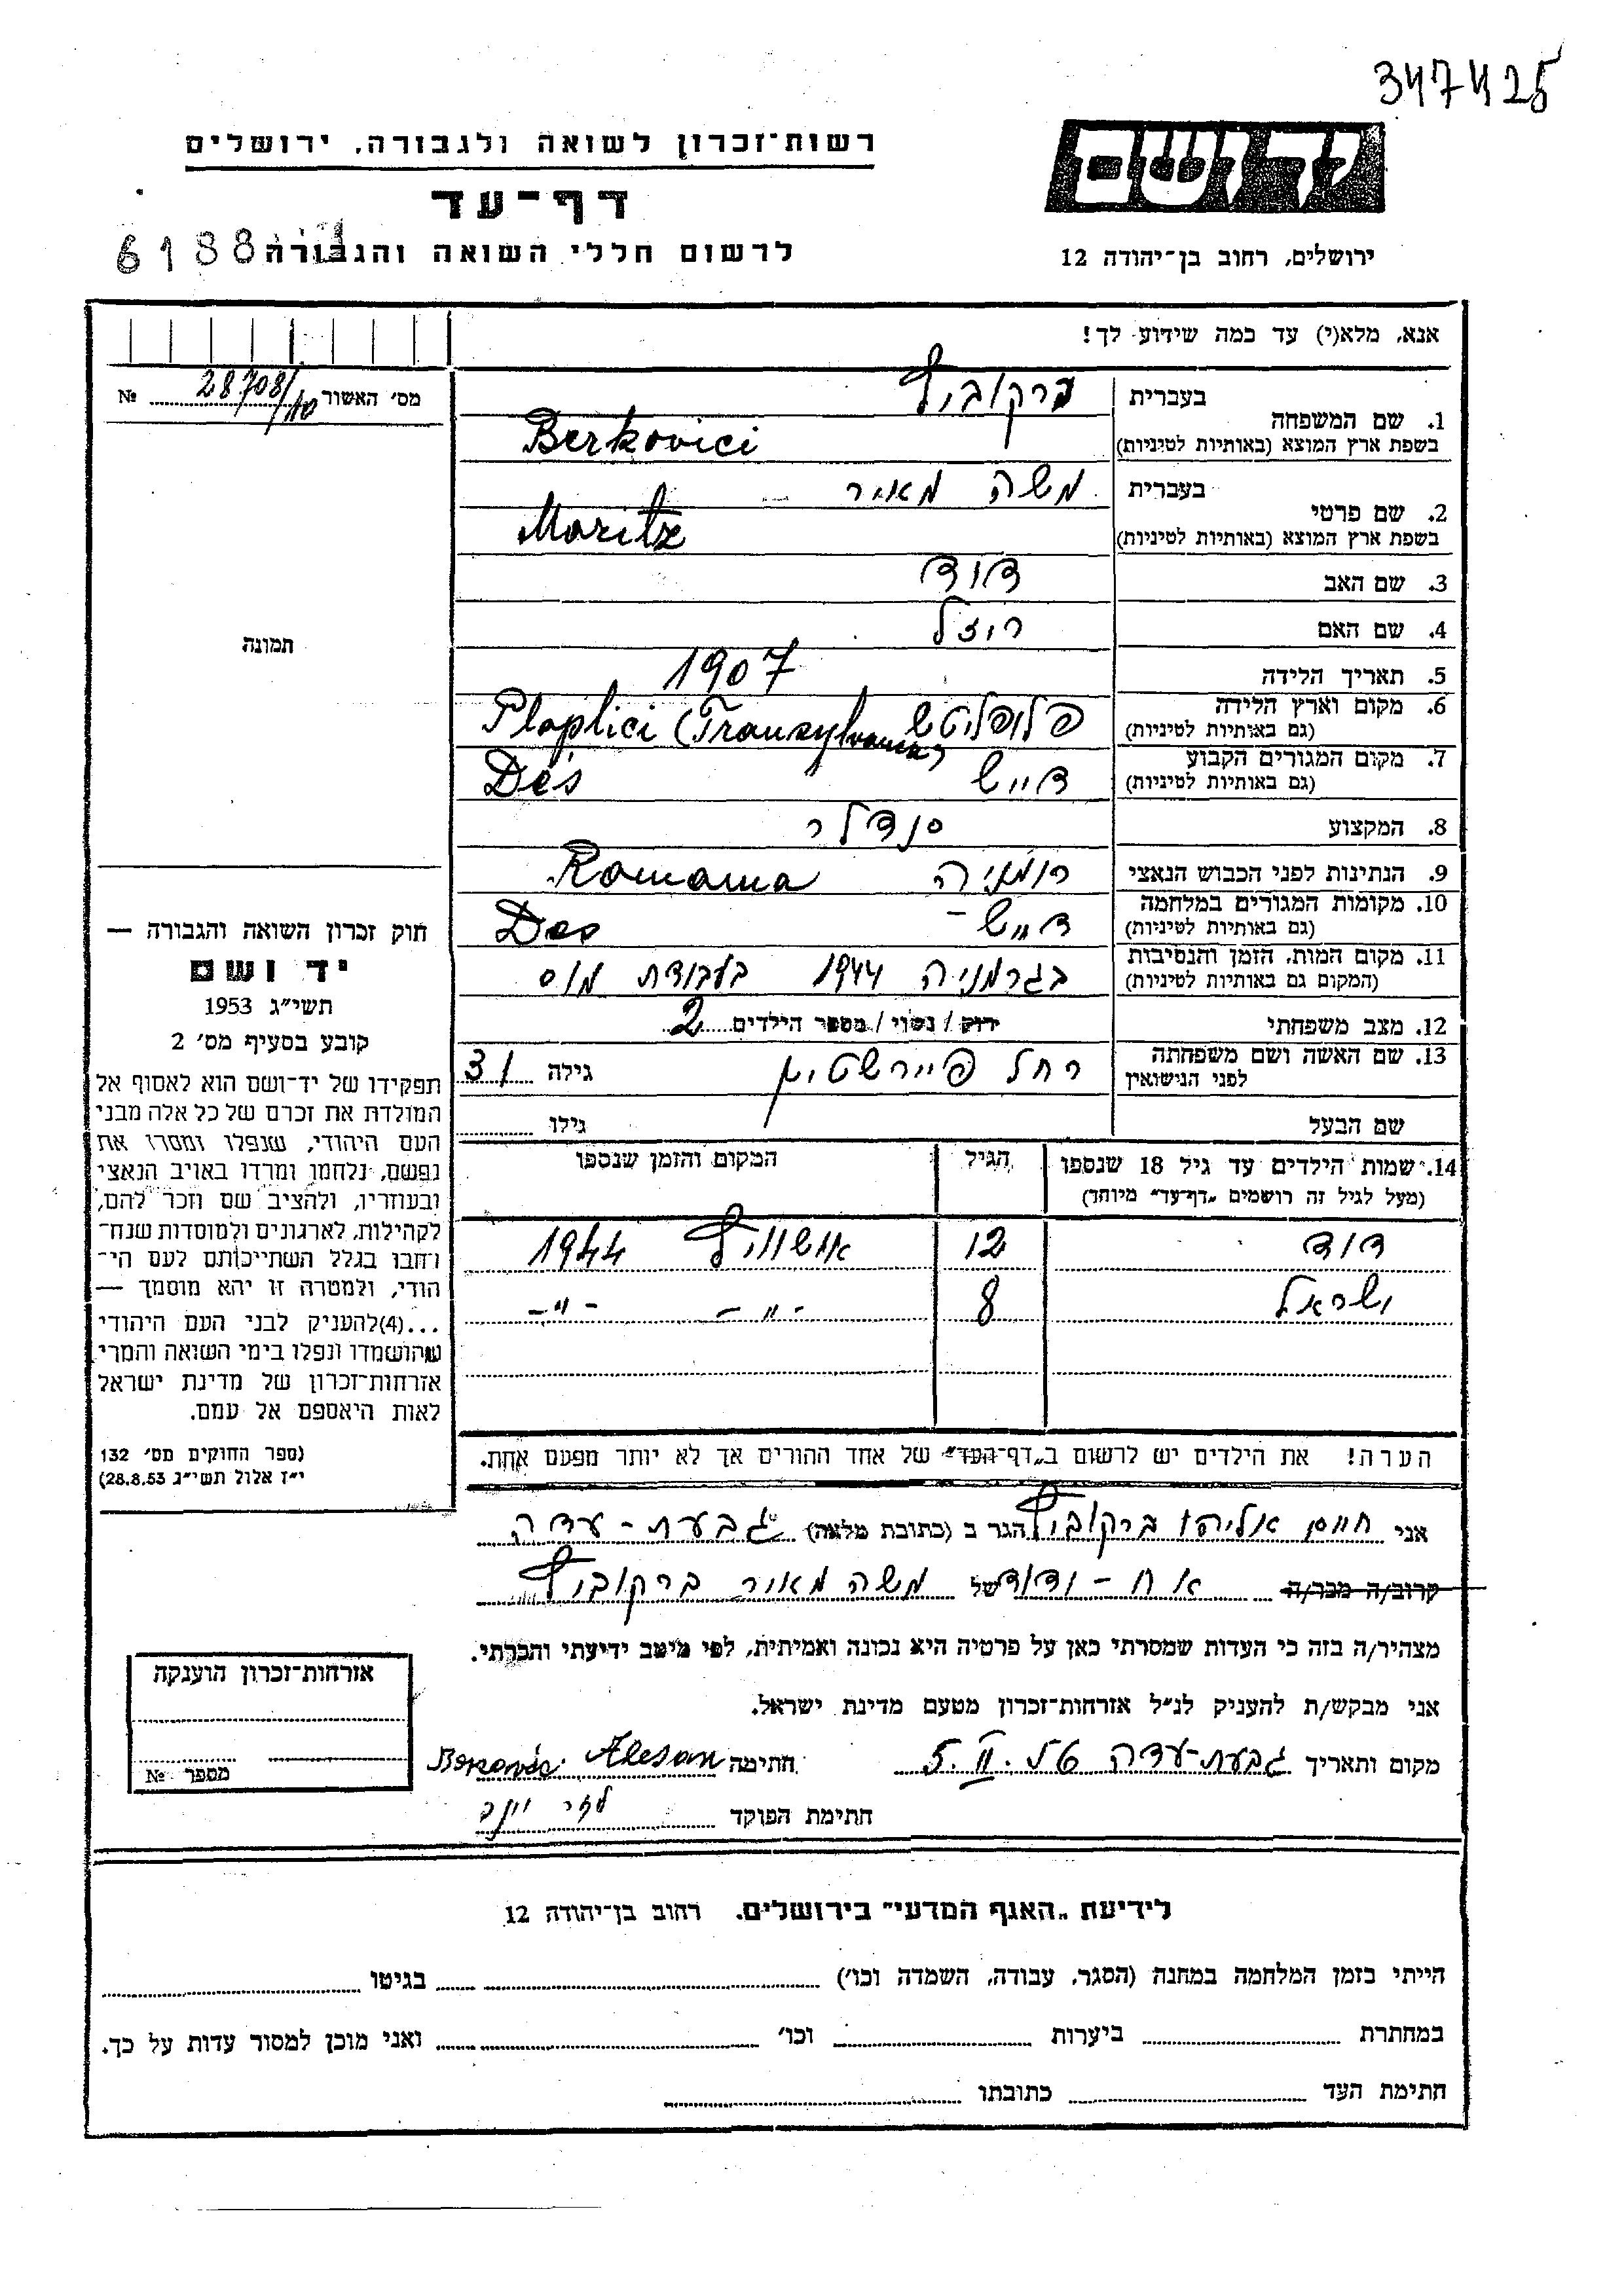 347425
רשות־זכרון לשואה ולגבורה, ירושלים
דף־עד
לרשום חללי השואה והגבורה
6188
יד ושם
ירושלים, רחוב בן־יהודה 12
אנא, מלא(י) עד כמה שידוע לך!
מס' האשור № 28708/10
1. שם המשפחה
בעברית ברקוביץ
בשפת ארץ המוצא (באותיות לטיניות) Berkovici
2. שם פרטי
בעברית משה מאיר
בשפת ארץ המוצא (באותיות לטיניות) Moritz
3. שם האב דוד
4. שם האם רוזל
5. תאריך הלידה 1907
6. מקום וארץ הלידה (גם באותיות לטיניות) פלופליטש Ploplici (Transylvania)
7. מקום המגורים הקבוע (גם באותיות לטיניות) דייש Dés
8. המקצוע סנדלר
9. הנתינות לפני הכבוש הנאצי רומניה Romania
10. מקומות המגורים במלחמה (גם באותיות לטיניות) דייש – Des
11. מקום המות, הזמן והנסיבות (המקום גם באותיות לטיניות) בגרמניה 1944 בעבודת
12. מצב משפחתי רוק / נשוי / מספר הילדים 2
13. שם האשה ושם משפחתה לפני הנישואין רחל פיירשטיין גילה 31
שם הבעל גילו
14. שמות הילדים עד גיל 18 שנספו (מעל לגיל זה רושמים "דף־עד" מיוחד) הגיל המקום והזמן שנספו
דוד 12 אושוויץ 1944
ישראל 8 -"- -"-
הערה! את הילדים יש לרשום ב"דף־העד" של אחד ההורים אך לא יותר מפעם אחת.
תמונה
חוק זכרון השואה והגבורה —
יד ושם
תשי"ג 1953
קובע בסעיף מס' 2
תפקידו של יד־ושם הוא לאסוף אל
המולדת את זכרם של כל אלה מבני
העם היהודי, שנפלו ומסרו את
נפשם, נלחמו ומרדו באויב הנאצי
ובעוזריו, ולהציב שם וזכר להם,
לקהילות, לארגונים ולמוסדות שנח־
רבו בגלל השתייכותם לעם הי־
הודי, ולמטרה זו יהא מוסמך —
...(4)להעניק לבני העם היהודי
שהושמדו ונפלו בימי השואה והמרי
אזרחות־זכרון של מדינת ישראל
לאות היאספם אל עמם.
(ספר החוקים מס' 132
י"ז אלול תשי"ג 28.8.53)
אני חיים אליהו ברקוביץ הגר ב (כתובת מלאה) גבעת-עדה
קרוב/ה מכר/ה אח - ודוד של משה מאיר ברקוביץ
מצהיר/ה בזה כי העדות שמסרתי כאן על פרטיה היא נכונה ואמיתית, לפי מיטב ידיעתי והכרתי.
אני מבקש/ת להעניק לנ"ל אזרחות־זכרון מטעם מדינת ישראל.
מקום ותאריך גבעת-עדה 5.II. חתימה
חתימת הפוקד
אזרחות־זכרון הוענקה
מספר №
לידיעת "האגף המדעי" בירושלים, רחוב בן־יהודה 12
הייתי בזמן המלחמה במחנה (הסגר, עבודה, השמדה וכו') בגיטו
במחתרת ביערות וכו' ואני מוכן למסור עדות על כך.
חתימת העד כתובתו